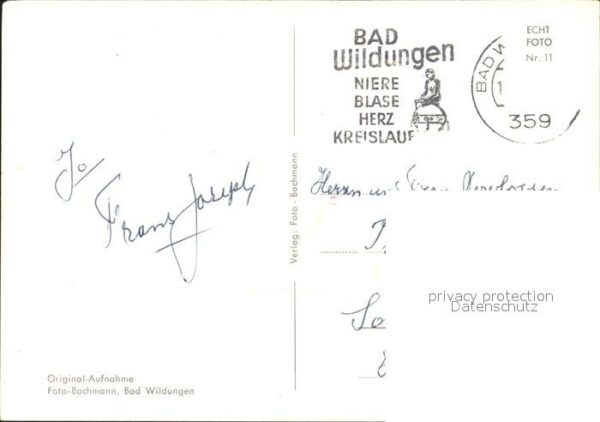 BAD
Wildungen
NIERE
BLASE
HERZ
KREISLAUF
BAD W
1
359
ECHT
FOTO
Nr. 11
Jo
Franz Joseph
Verlag: Foto - Bachmann
Herrn und Frau
privacy protection
Datenschutz
Original-Aufnahme
Foto-Bachmann, Bad Wildungen